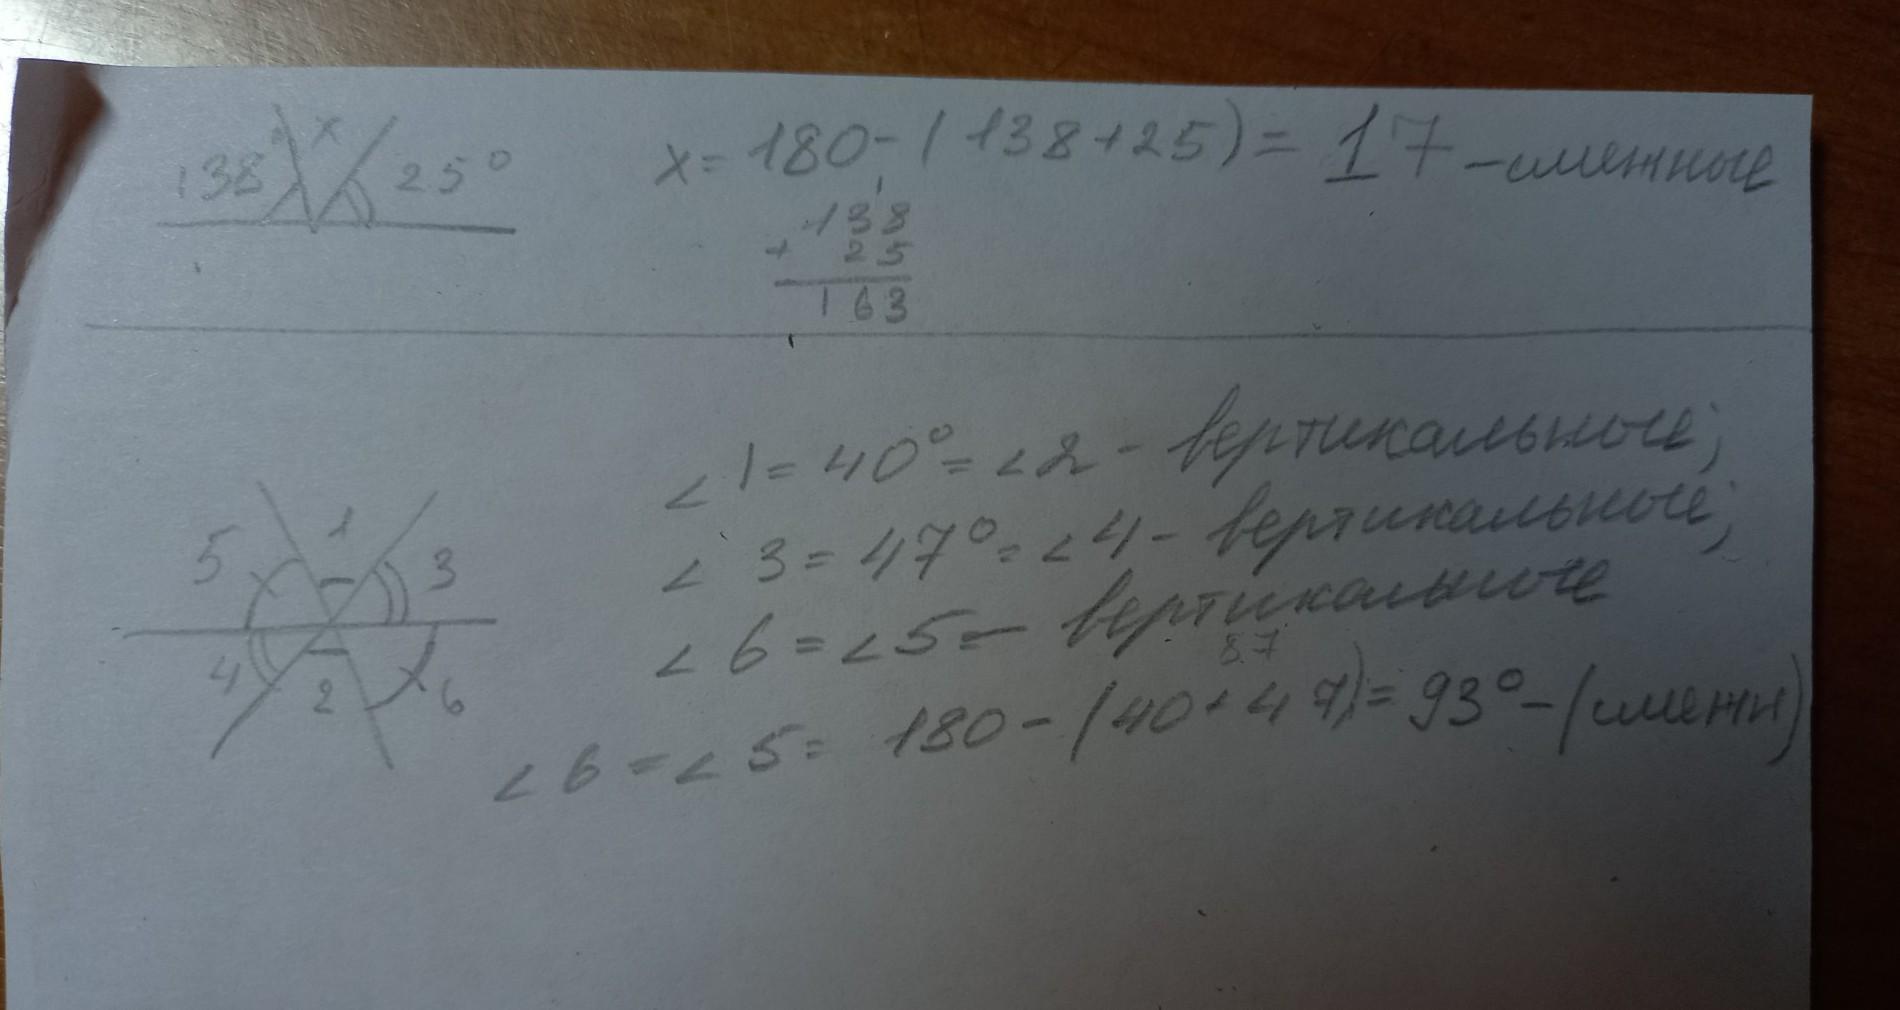 138° x 25° x = 180 - (138 + 25) = 17 - смежные
138
+ 25
163
∠1 = 40° = ∠2 - вертикальные;
∠3 = 47° = ∠4 - вертикальные;
∠6 = ∠5 - вертикальные
87
∠6 = ∠5 = 180 - (40 + 47) = 93° - (смежн)
5 1 3
4 2 6